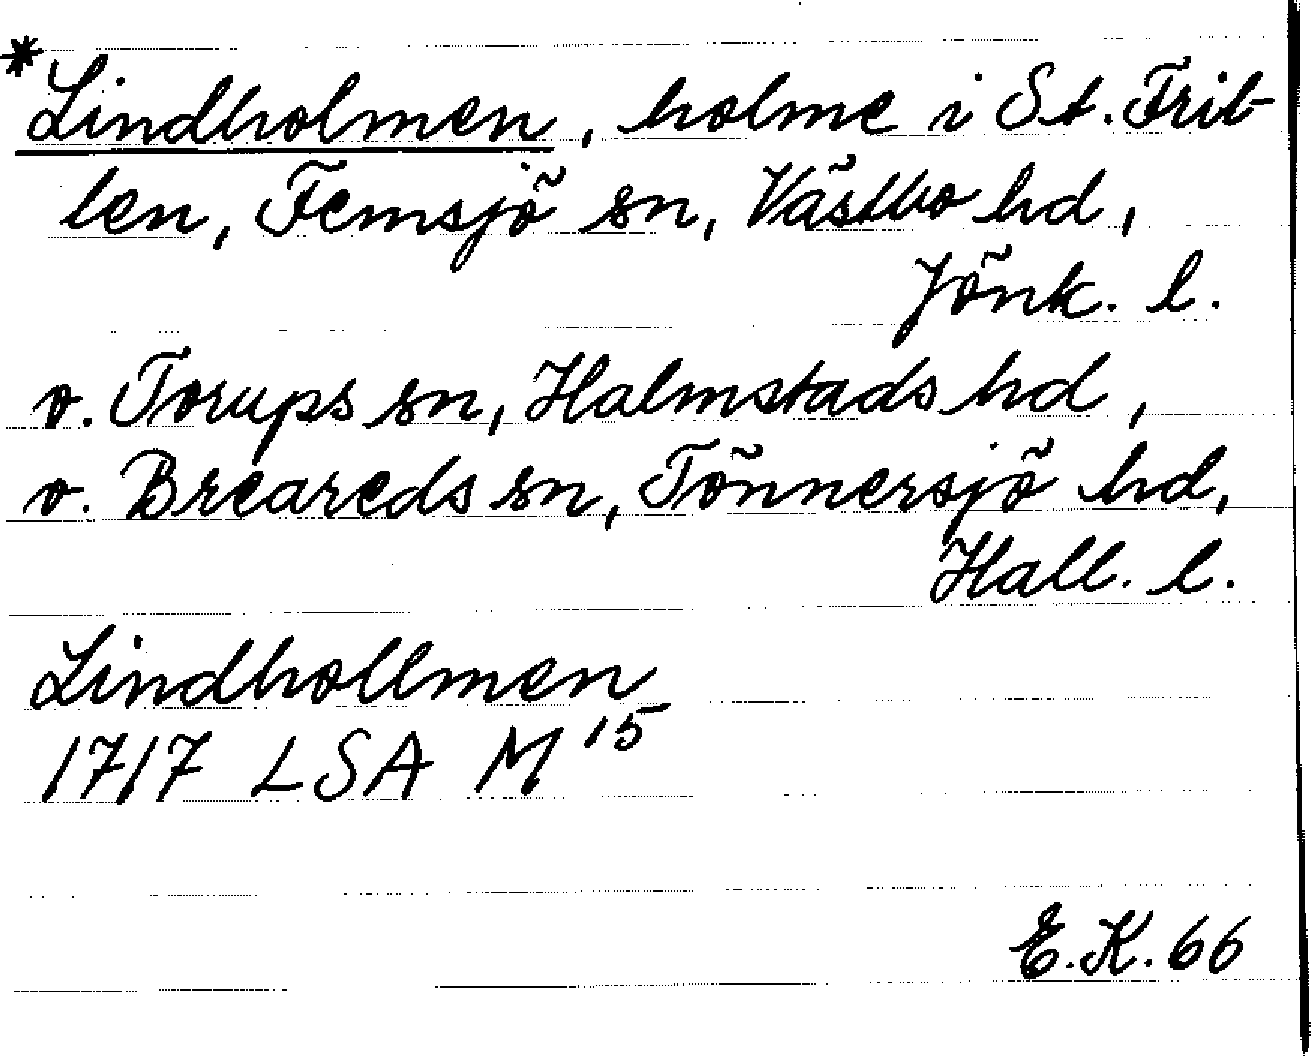 *Lindholmen, holme i St. Frib-
len, Femsjö sn, Västbo hd,
Jönk. l.
o. Torups sn, Halmstads hd,
o. Breareds sn, Tönnersjö hd,
Hall. l.
Lindhollmen
1717 LSA M 15
E.K. 66